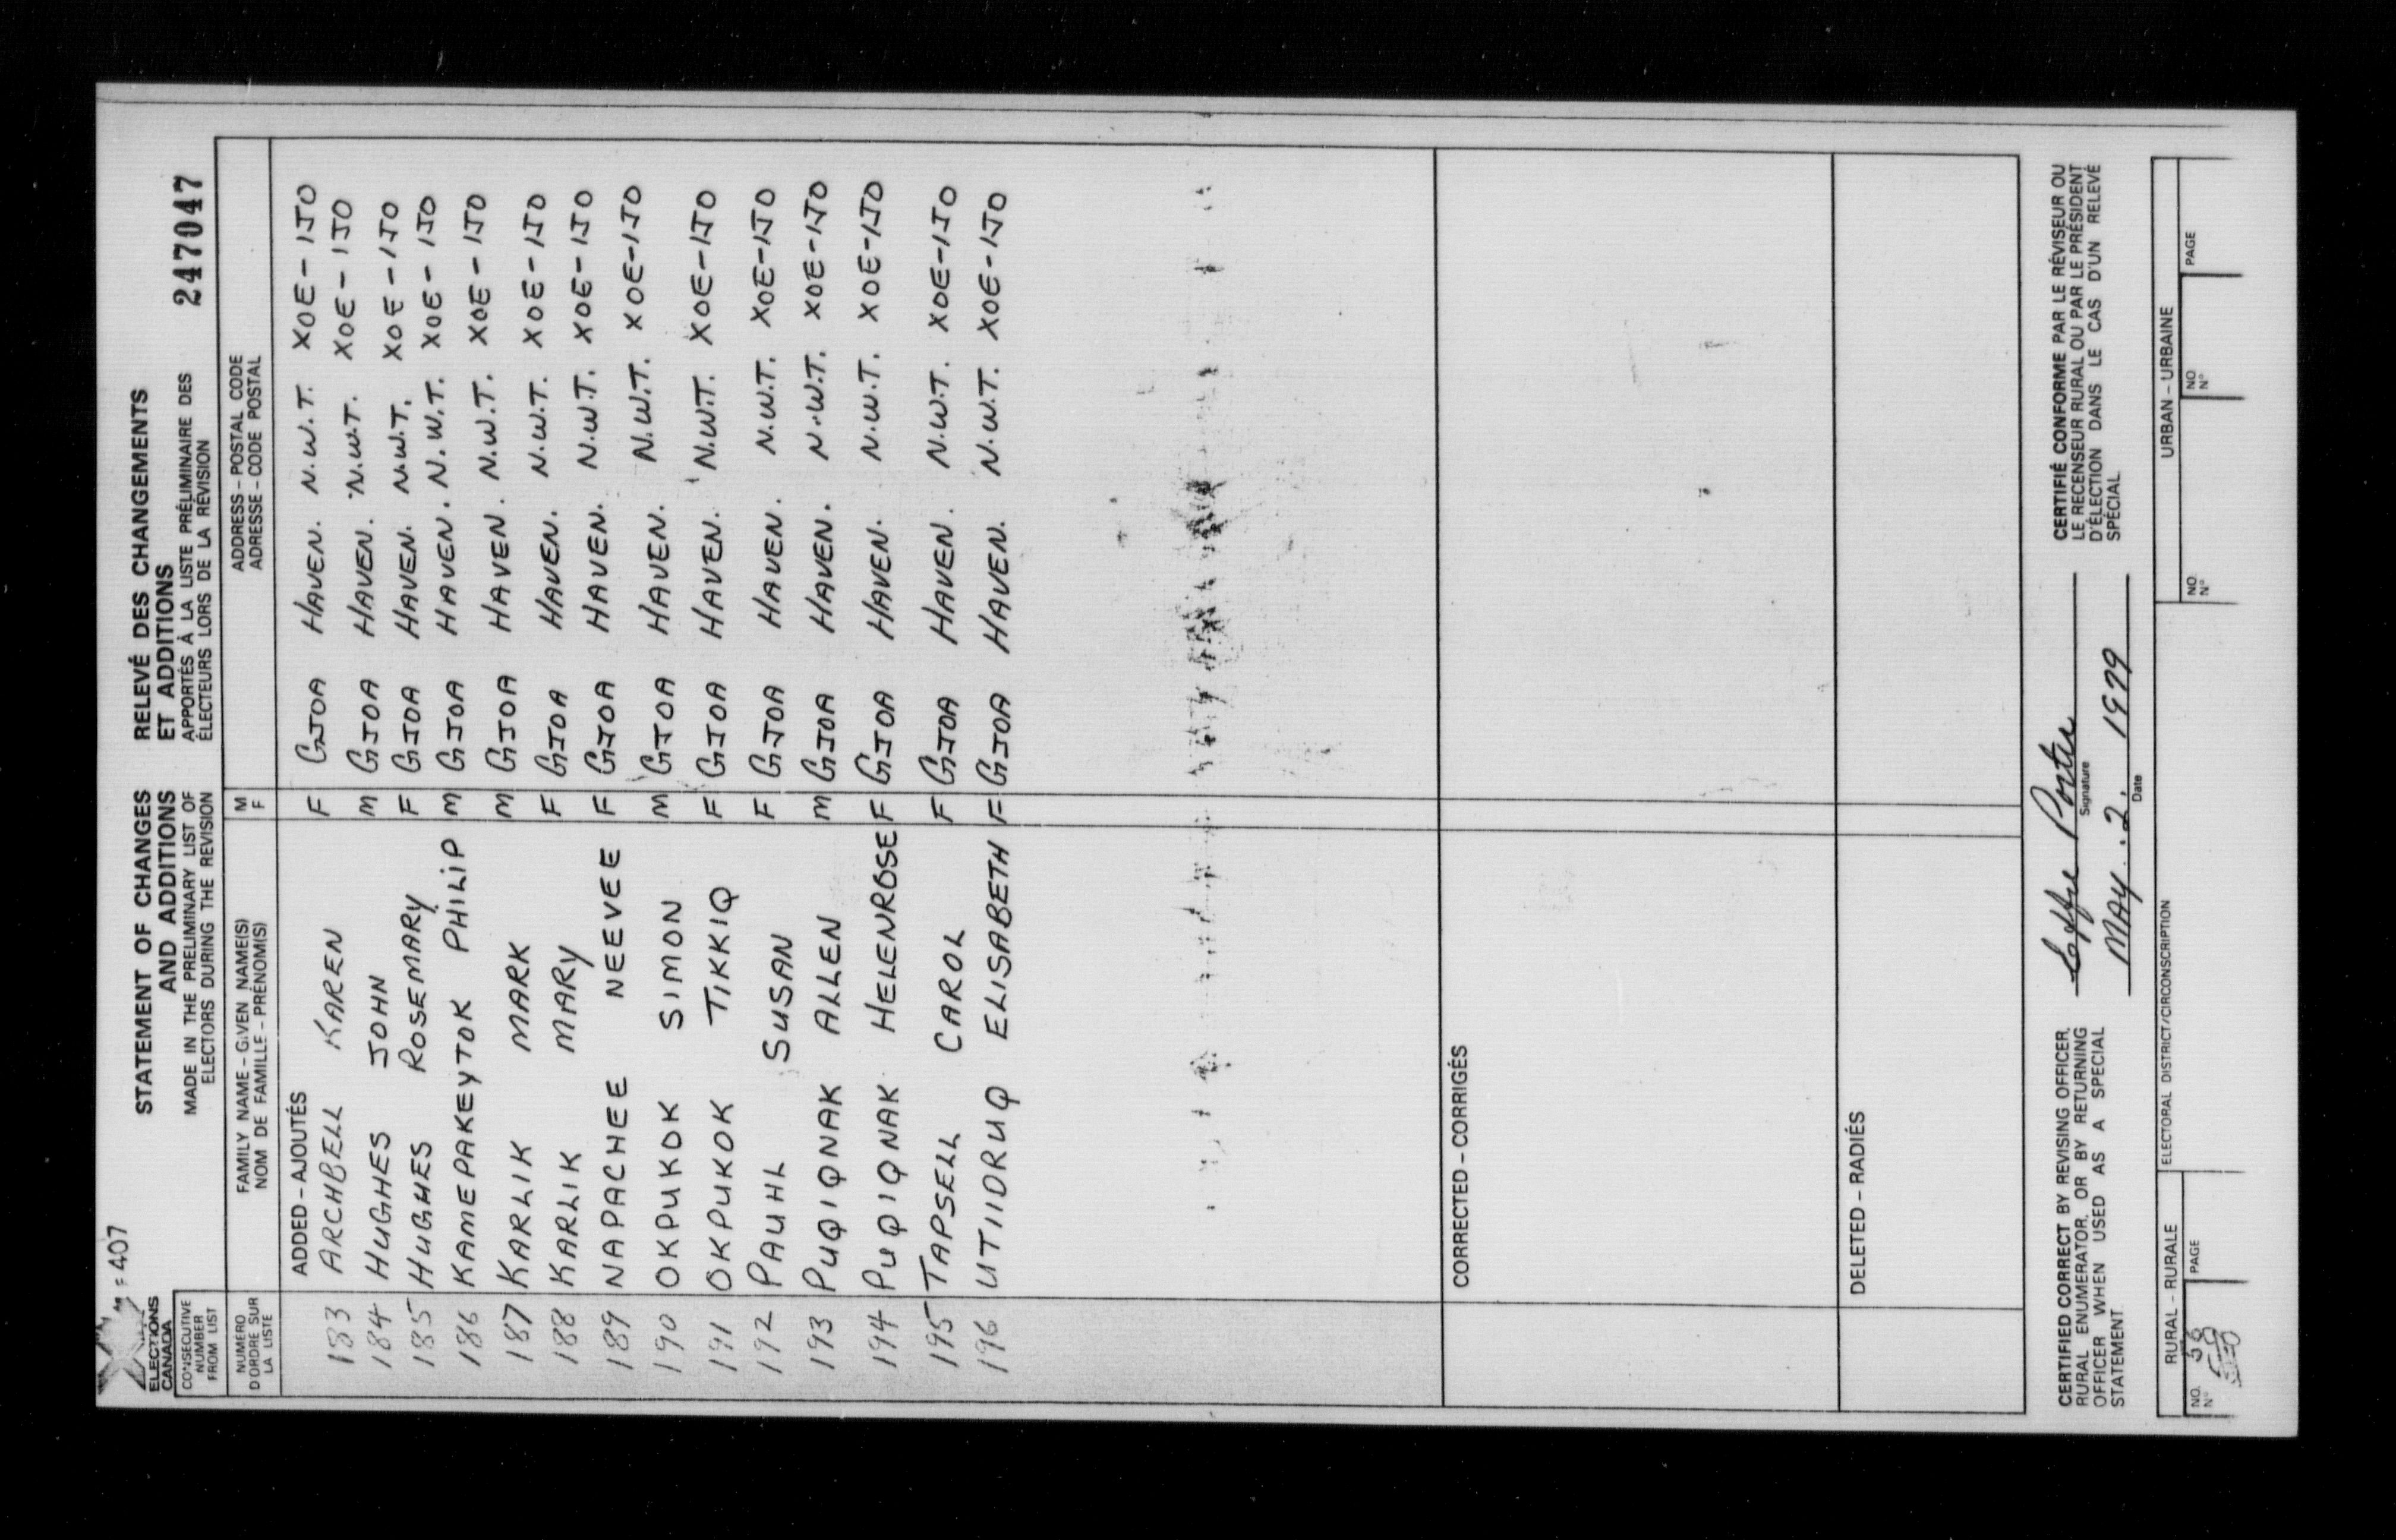 =407
ELECTIONS
CANADA
STATEMENT OF CHANGES
AND ADDITIONS
MADE IN THE PRELIMINARY LIST OF
ELECTORS DURING THE REVISION
RELEVÉ DES CHANGEMENTS
ET ADDITIONS
APPORTÉS À LA LISTE PRÉLIMINAIRE DES
ÉLECTEURS LORS DE LA RÉVISION
247047
CONSECUTIVE
NUMBER
FROM LIST
NUMÉRO
D'ORDRE SUR
LA LISTE
FAMILY NAME – GIVEN NAME(S)
NOM DE FAMILLE – PRÉNOM(S)
M
F
ADDRESS – POSTAL CODE
ADRESSE – CODE POSTAL
ADDED – AJOUTÉS
183 ARCHBELL KAREN F GJOA HAVEN. N.W.T. X0E-1J0
184 HUGHES JOHN M GJOA HAVEN. N.W.T. X0E-1J0
185 HUGHES ROSEMARY F GJOA HAVEN. N.W.T. X0E-1J0
186 KAMEPAKEYTOK PHILIP M GJOA HAVEN. N.W.T. X0E-1J0
187 KARLIK MARK M GJOA HAVEN. N.W.T. X0E-1J0
188 KARLIK MARY F GJOA HAVEN. N.W.T. X0E-1J0
189 NAPACHEE NEEVEE F GJOA HAVEN. N.W.T. X0E-1J0
190 OKPUKOK SIMON M GJOA HAVEN. N.W.T. X0E-1J0
191 OKPUKOK TIKKIQ F GJOA HAVEN. N.W.T. X0E-1J0
192 PAUHL SUSAN F GJOA HAVEN. N.W.T. X0E-1J0
193 PUQIQNAK ALLEN M GJOA HAVEN. N.W.T. X0E-1J0
194 PUQIQNAK HELENROSE F GJOA HAVEN. N.W.T. X0E-1J0
195 TAPSELL CAROL F GJOA HAVEN. N.W.T. X0E-1J0
196 UTIIDRUQ ELISABETH F GJOA HAVEN. N.W.T. X0E-1J0
CORRECTED – CORRIGÉS
DELETED – RADIÉS
CERTIFIED CORRECT BY REVISING OFFICER,
RURAL ENUMERATOR, OR BY RETURNING
OFFICER WHEN USED AS A SPECIAL
STATEMENT.
Porter
Signature
MAY. 2. 1979
Date
CERTIFIÉ CONFORME PAR LE RÉVISEUR OU
LE RECENSEUR RURAL OU PAR LE PRÉSIDENT
D'ÉLECTION DANS LE CAS D'UN RELEVÉ
SPÉCIAL.
RURAL – RURALE
NO.
N°
58
PAGE
ELECTORAL DISTRICT/CIRCONSCRIPTION
URBAN – URBAINE
NO.
N°
NO
N°
PAGE